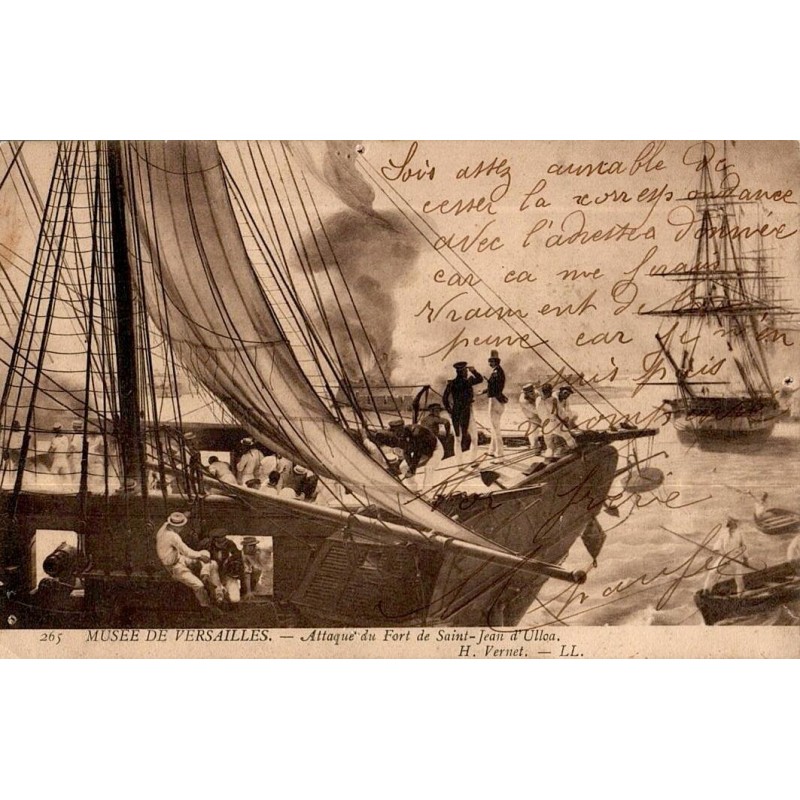 Sois assez aimable de
cesser la correspondance
avec l'adresse donnée
car ca me ferais
vraiment de la
peine car je
suis
frère
265 MUSÉE DE VERSAILLES. — Attaque du Fort de Saint-Jean d'Ulloa.
H. Vernet. — LL.